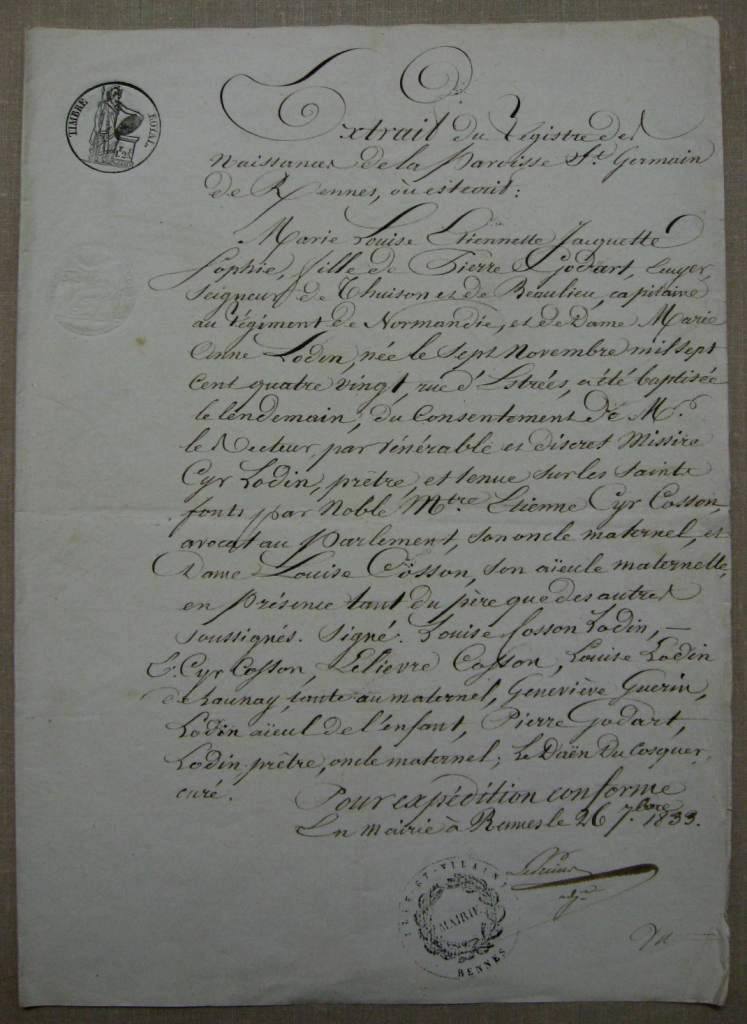 TIMBRE ROYAL
Extrait du Régistre des
Naissances de la Paroisse St. Germain
de Rennes, où est écrit:
Marie Louise Etiennette Jacquette
Sophie, fille de Pierre Godart, Ecuyer,
Seigneur de Thuison et de Beaulieu, capitaine
au régiment de Normandie, et de Dame Marie
Anne Lodin, née le sept Novembre mil sept
cent quatre vingt, rue d'Estrées, a été baptisée
le lendemain, du Consentement de Mr.
le Recteur, par vénérable et discret Missire
Cyr Lodin, prêtre, et tenue sur les Saints
fonts par Noble Mtre Etienne Cyr Cosson,
avocat au Parlement, son oncle maternel, et
Dame Louise Cosson, son aïeule maternelle,
en présence tant du père que des autres
soussignés. Signé. Louise Cosson Lodin, —
E. Cyr Cosson, Lelievre Cosson, Louise Lodin
de Launay, tante au maternel, Geneviève Guerin,
Lodin aïeul de l'enfant, Pierre Godart,
Lodin prêtre, oncle maternel; Le Daën Du Cosquer,
curé.
Pour expédition conforme
En Mairie à Rennes le 26 7.bre 1833.
ILLE-ET-VILAINE
MAIRIE
RENNES